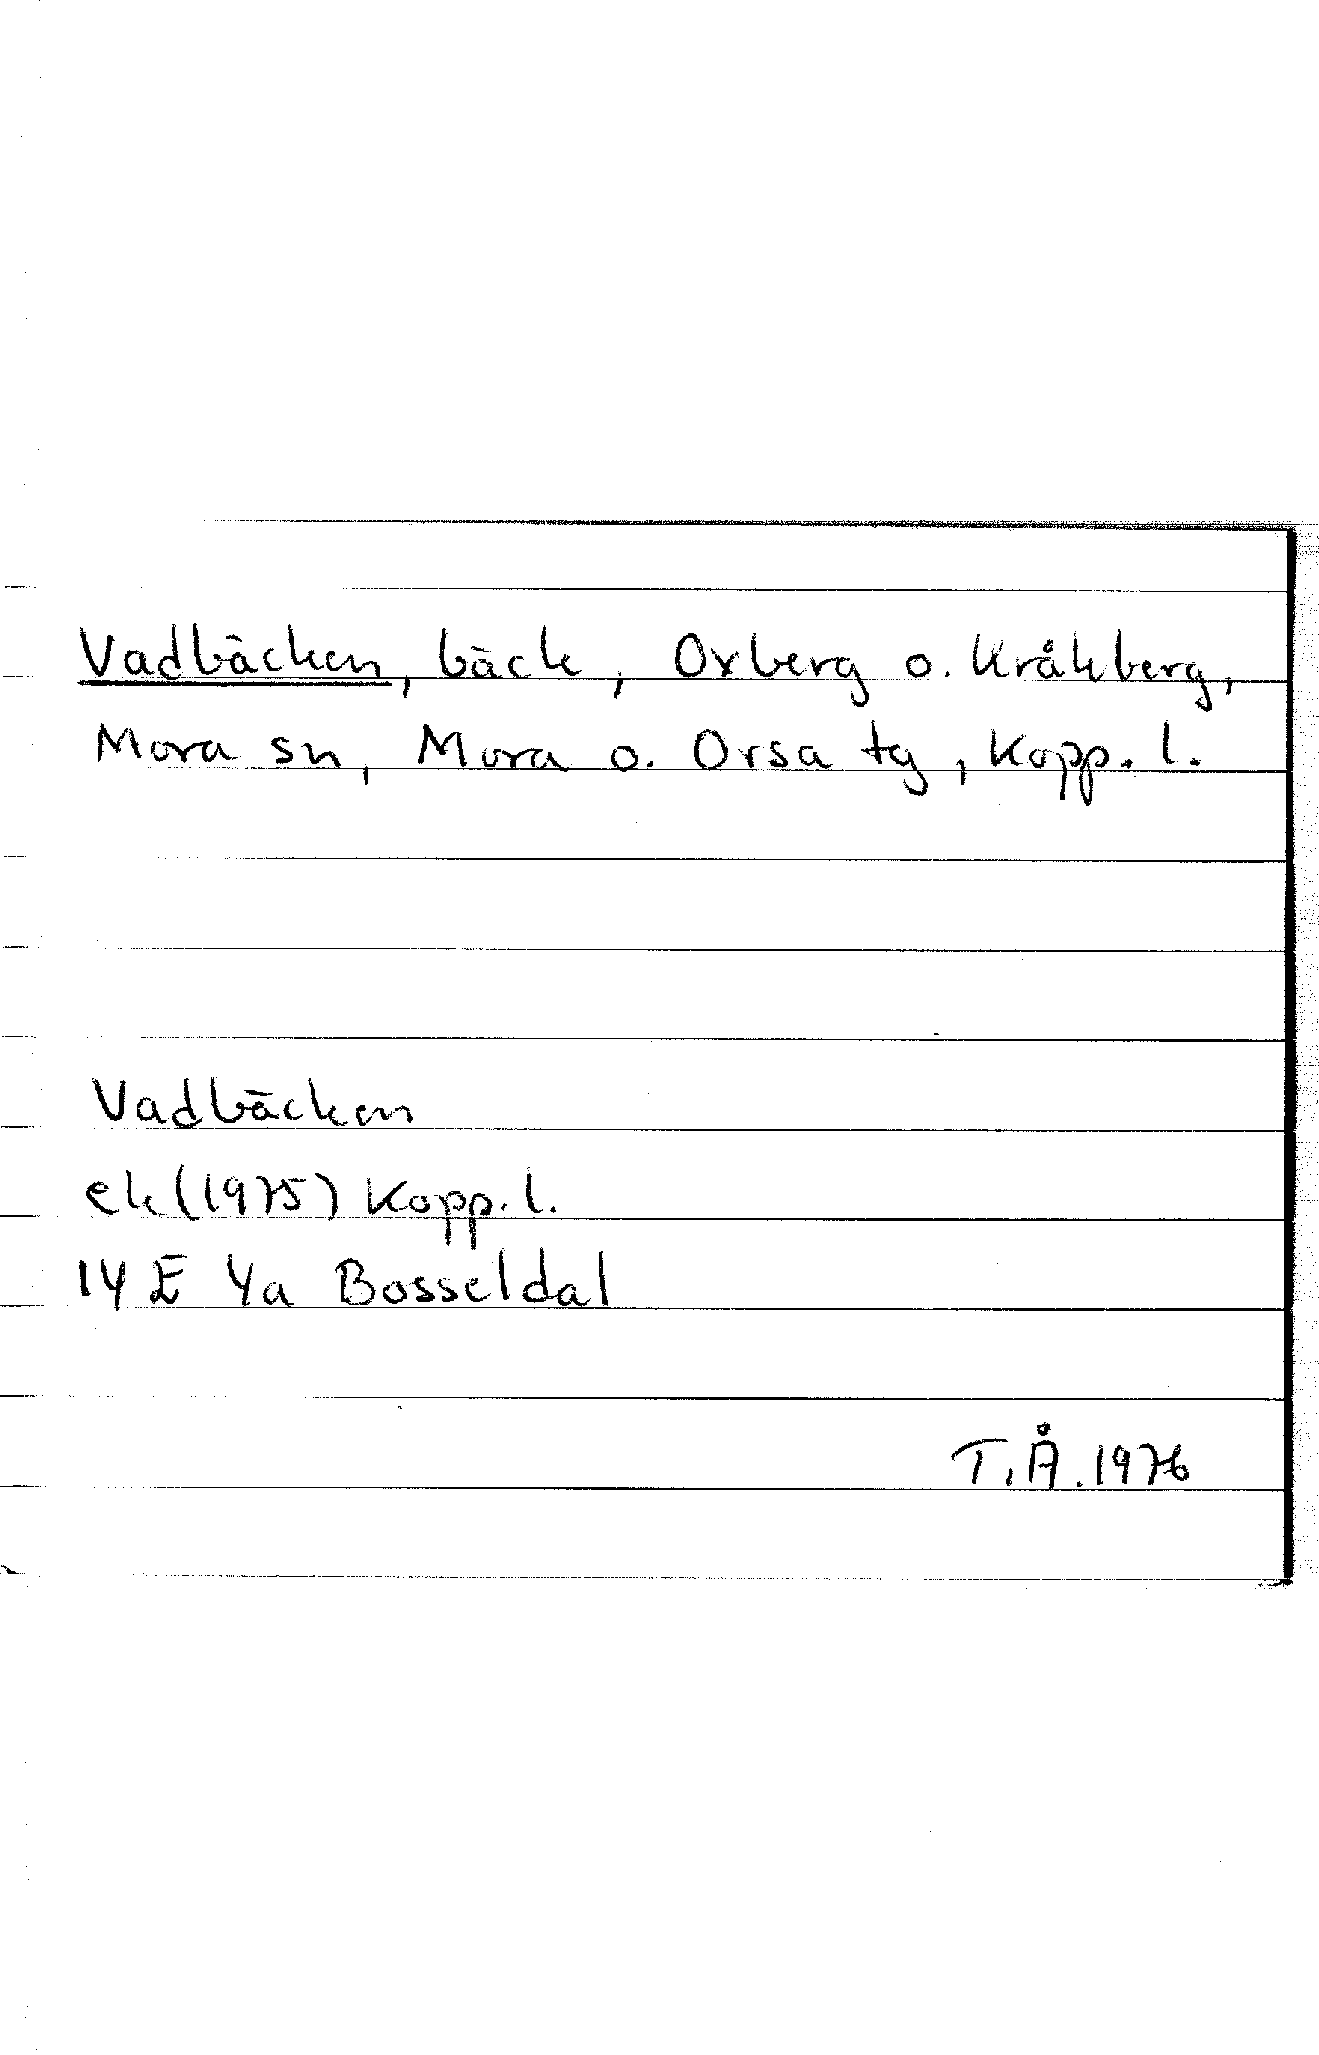 Vadbäcken, bäck, Oxberg o. Kråkberg,
Mora sn, Mora o. Orsa tg, Kopp. l.
Vadbäcken
ek (1975) Kopp. l.
14 E 4a Bosseldal
T.Å. 1976